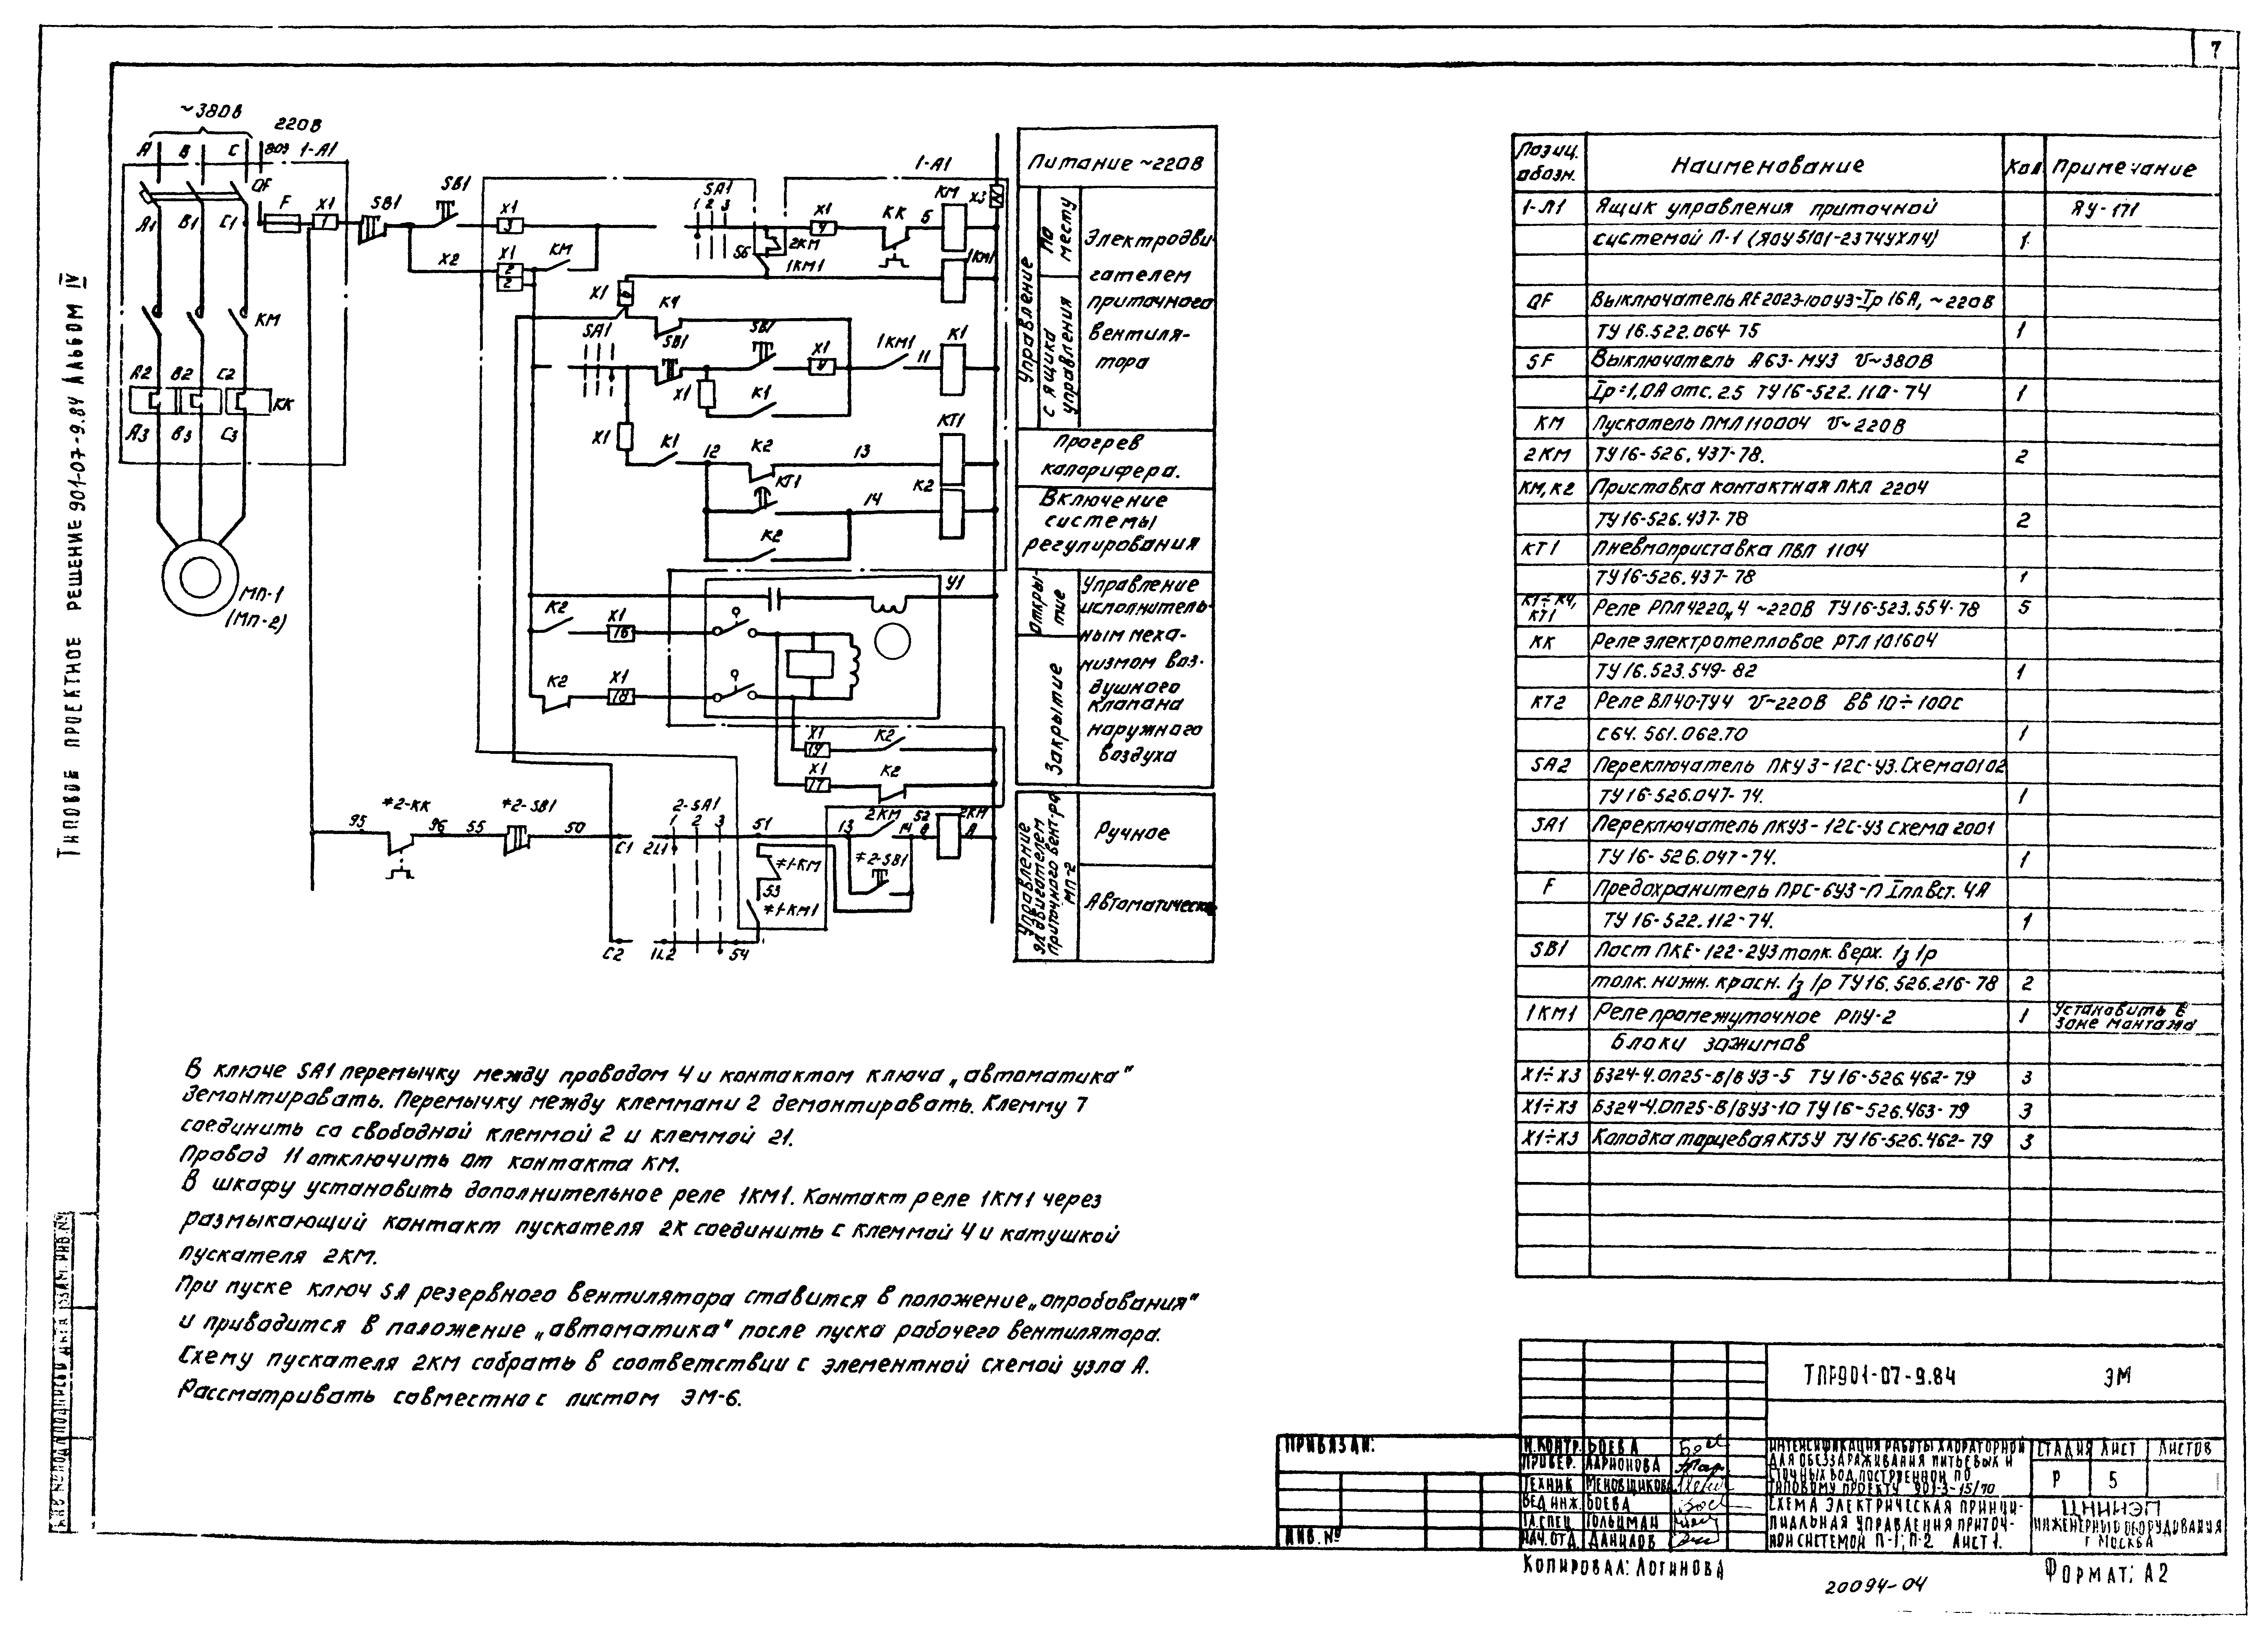 7
Типовое проектное решение 901-07-9.84 Альбом IV
~380В
220В
А В С 803 1-А1
QF
F X1 SB1 SB1 X1 SA1 X1 КК 5 КМ X3
1-А1
А1 В1 С1
1
3
1 2 3
4
2КМ
56
1КМ1
1КМ1
X2 X1 КМ
2
2
X1
6
К4
КМ
SA1 SB1 SB1 X1 1КМ1 11 К1
А2 В2 С2
КК
X1 К1
А3 В3 С3
X1 К1 12 К2 13 КТ1
КТ1 14 К2
К2
МП-1
(МП-2)
У1
К2 X1
16
К2 X1
18
X1 К2
19
X1 К2
17
*2-КК *2-SB1 2-SA1 2КМ 52 2КМ
95 96 55 50 С1 2L1 1 2 3 51 13 14 В А
*1-КМ *2-SB1
53
*1-КМ1
С2 1L2 54
Питание ~220В
Управление
по месту
с ящика управления
Электродви
гателем
приточного
вентиля-
тора
Прогрев
калорифера.
Включение
системы
регулирования
Откры-
тие
Закрытие
Управление
исполнитель-
ным меха-
низмом воз-
душного
клапана
наружного
воздуха
Управление
эл.двигателем
приточного вент-ра
МП-2
Ручное
Автоматическое
В ключе SA1 перемычку между проводом 4 и контактом ключа „автоматика"
демонтировать. Перемычку между клеммами 2 демонтировать. Клемму 7
соединить со свободной клеммой 2 и клеммой 21.
Провод 11 отключить от контакта КМ.
В шкафу установить дополнительное реле 1КМ1. Контакт реле 1КМ1 через
размыкающий контакт пускателя 2К соединить с клеммой 4 и катушкой
пускателя 2КМ.
При пуске ключ SA резервного вентилятора ставится в положение „опробования"
и приводится в положение „автоматика" после пуска рабочего вентилятора.
Схему пускателя 2КМ собрать в соответствии с элементной схемой узла А.
Рассматривать совместно с листом ЭМ-6.
Позиц. обозн. Наименование Кол Примечание
1-Л1 Ящик управления приточной ЯУ-171
системой П-1 (ЯОУ5101-2374УХЛ4) 1
QF Выключатель АЕ2023-100У3-Iр 16А, ~220В
ТУ 16.522.064-75 1
SF Выключатель А63-МУ3 U~380В
Iр=1,0А отс. 25 ТУ16-522.110-74 1
КМ Пускатель ПМЛ110004 U~220В
2КМ ТУ16-526.437-78. 2
КМ, К2 Приставка контактная ПКЛ 2204
ТУ16-526.437-78 2
КТ1 Пневмоприставка ПВЛ 1104
ТУ16-526.437-78 1
К1÷К4, КТ1 Реле РПЛ4220х4 ~220В ТУ16-523.554-78 5
КК Реле электротепловое РТЛ101604
ТУ16.523.549-82 1
КТ2 Реле ВЛ40-ТУ4 U~220В ВВ 10÷100С
С64.561.062.ТО 1
SA2 Переключатель ПКУ3-12С-У3.Схема0102
ТУ16-526.047-74. 1
SA1 Переключатель ПКУ3-12С-У3 схема 2001
ТУ16-526.047-74. 1
F Предохранитель ПРС-6У3-П Iпл.вст. 4А
ТУ 16-522.112-74. 1
SB1 Пост ПКЕ-122-2У3 толк. верх. 1з 1р
толк. нижн. красн. 1з 1р ТУ16.526.216-78 2
1КМ1 Реле промежуточное РПУ-2 1 Установить в зоне монтажа
Блоки зажимов
X1÷X3 Б324-4.0П25-В/ВУ3-5 ТУ16-526.462-79 3
X1÷X3 Б324-4.0П25-В/ВУ3-10 ТУ16-526.463-79 3
X1÷X3 Колодка торцевая КТ5У ТУ16-526.462-79 3
ТПР901-07-9.84 ЭМ
Привязан:
Инв. №
Н.контр. Боева
Провер. Ларионова
Техник Меновщикова
Вед.инж. Боева
Гл.спец Гольцман
Нач.отд. Данилов
Интенсификация работы хлораторной
для обеззараживания питьевых и
сточных вод, построенной по
типовому проекту 901-3-15/70
Стадия Лист Листов
Р 5
Схема электрическая принци-
пиальная управления приточ-
ной системой П-1; П-2. Лист 1.
ЦНИИЭП
инженерного оборудования
г Москва
Копировал: Логинова
20094-04
Формат: А2
Инв № подл Подпись и дата Взам. инв. №